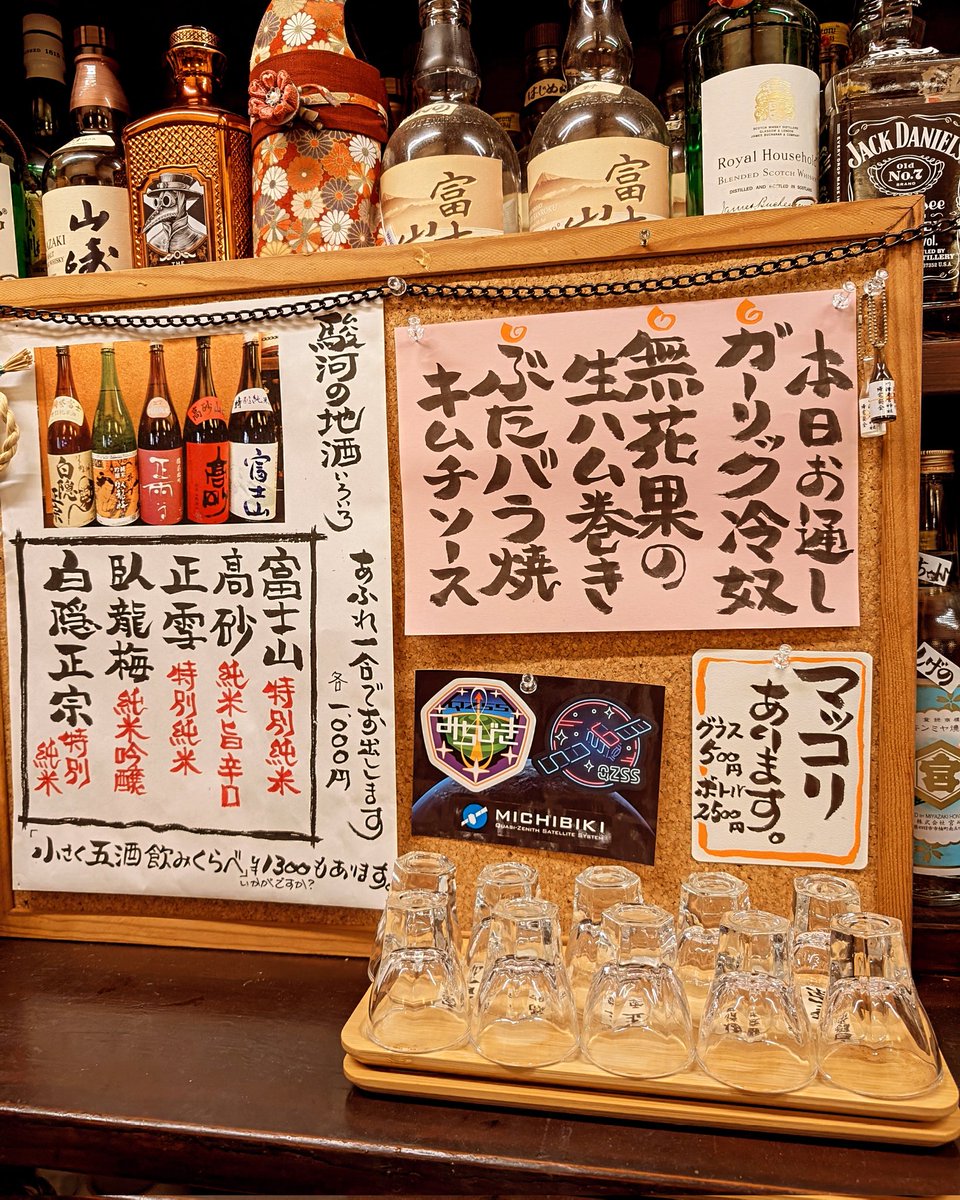 山崎
富
富
Royal Household
BLENDED SCOTCH WHISKY
DISTILLED AND
JACK DANIEL'S
Old
No.7
BRAND
本日お通し
ガーリック冷奴
無花果の
生ハム巻き
ぶたバラ焼
キムチソース
駿河の地酒いろいろ
あふれ一合でお出しします
各 1,000円
富士山 特別純米
高砂 純米旨辛口
正雪 特別純米
臥龍梅 純米吟醸
白隠正宗 特別純米
「小さく五酒飲みくらべ」¥1300もあります。
いかがですか?
高砂
正雪
富士山
みちびき
QZSS
MICHIBIKI
QUASI-ZENITH SATELLITE SYSTEM
マッコリ
あります。
グラス
500円
ボトル
2500円